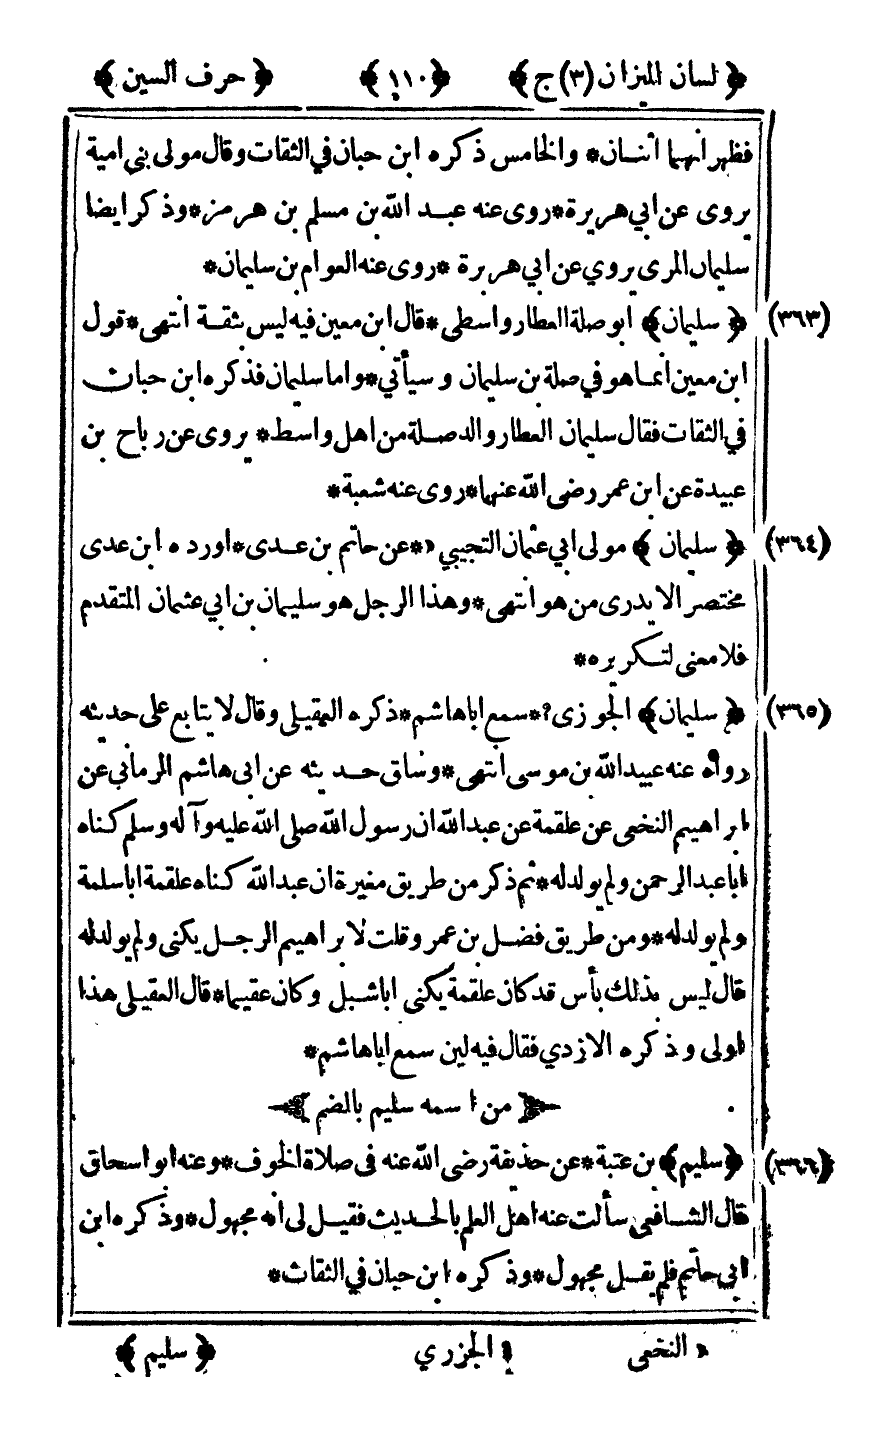 ﴿ لسان الميزان (٣) ج ﴾ ﴿ ١١٠ ﴾ ﴿ حرف السين ﴾
فظهر انهما اثنان * والخامس ذكره ابن حبان في الثقات وقال مولى بني امية
يروى عن ابي هريرة * روى عنه عبد الله بن مسلم بن هرمز * وذكر ايضا
سليمان المرى يروي عن ابي هريرة * روى عنه العوام بن سليمان *
(٣٦٣) ﴿ سليمان ﴾ ابو صلة العطار واسطى * قال ابن معين فيه ليس بثقة انتهى * قول
ابن معين انما هو في صلة بن سليمان وسيأتي * واما سليمان فذكره ابن حبان
في الثقات فقال سليمان العطار والد صلة من اهل واسط * يروى عن رباح بن
عبيدة عن ابن عمر رضى الله عنهما * روى عنه شعبة *
(٣٦٤) ﴿ سليمان ﴾ مولى ابي عثمان التجيبي * عن حاتم بن عدى * اورده ابن عدى
مختصرا لا يدرى من هو انتهى * وهذا الرجل هو سليمان بن ابي عثمان المتقدم
فلا معنى لتكريره *
(٣٦٥) ﴿ سليمان ﴾ الجوزى ؟ * سمع اباهاشم * ذكره العقيلى وقال لا يتابع على حديثه
رواه عنه عبيد الله بن موسى انتهى * وساق حديثه عن ابى هاشم الرماني عن
ابراهيم النخعى عن علقمة عن عبد الله ان رسول الله صلى الله عليه وآله وسلم كناه
ابا عبد الرحمن ولم يولد له * ثم ذكر من طريق مغيرة ان عبد الله كناه علقمة اباسلمة
ولم يولد له * ومن طريق فضل بن عمر وقلت لابراهيم الرجل يكنى ولم يولد له
قال ليس بذلك بأس قد كان علقمة يكنى اباشبل وكان عقيما * قال العقيلى هذا
اولى وذكره الازدي فقال فيه لين سمع اباهاشم *
من اسمه سليم بالضم
(٣٦٦) ﴿ سليم ﴾ بن عتبة * عن حذيفة رضى الله عنه في صلاة الخوف * وعنه ابو اسحاق
قال الشافعى سألت عنه اهل العلم بالحديث فقيل لى انه مجهول * وذكره ابن
ابي حاتم فلم يقل مجهول * وذكره ابن حبان في الثقات *
النخعى الجزري ﴿ سليم ﴾